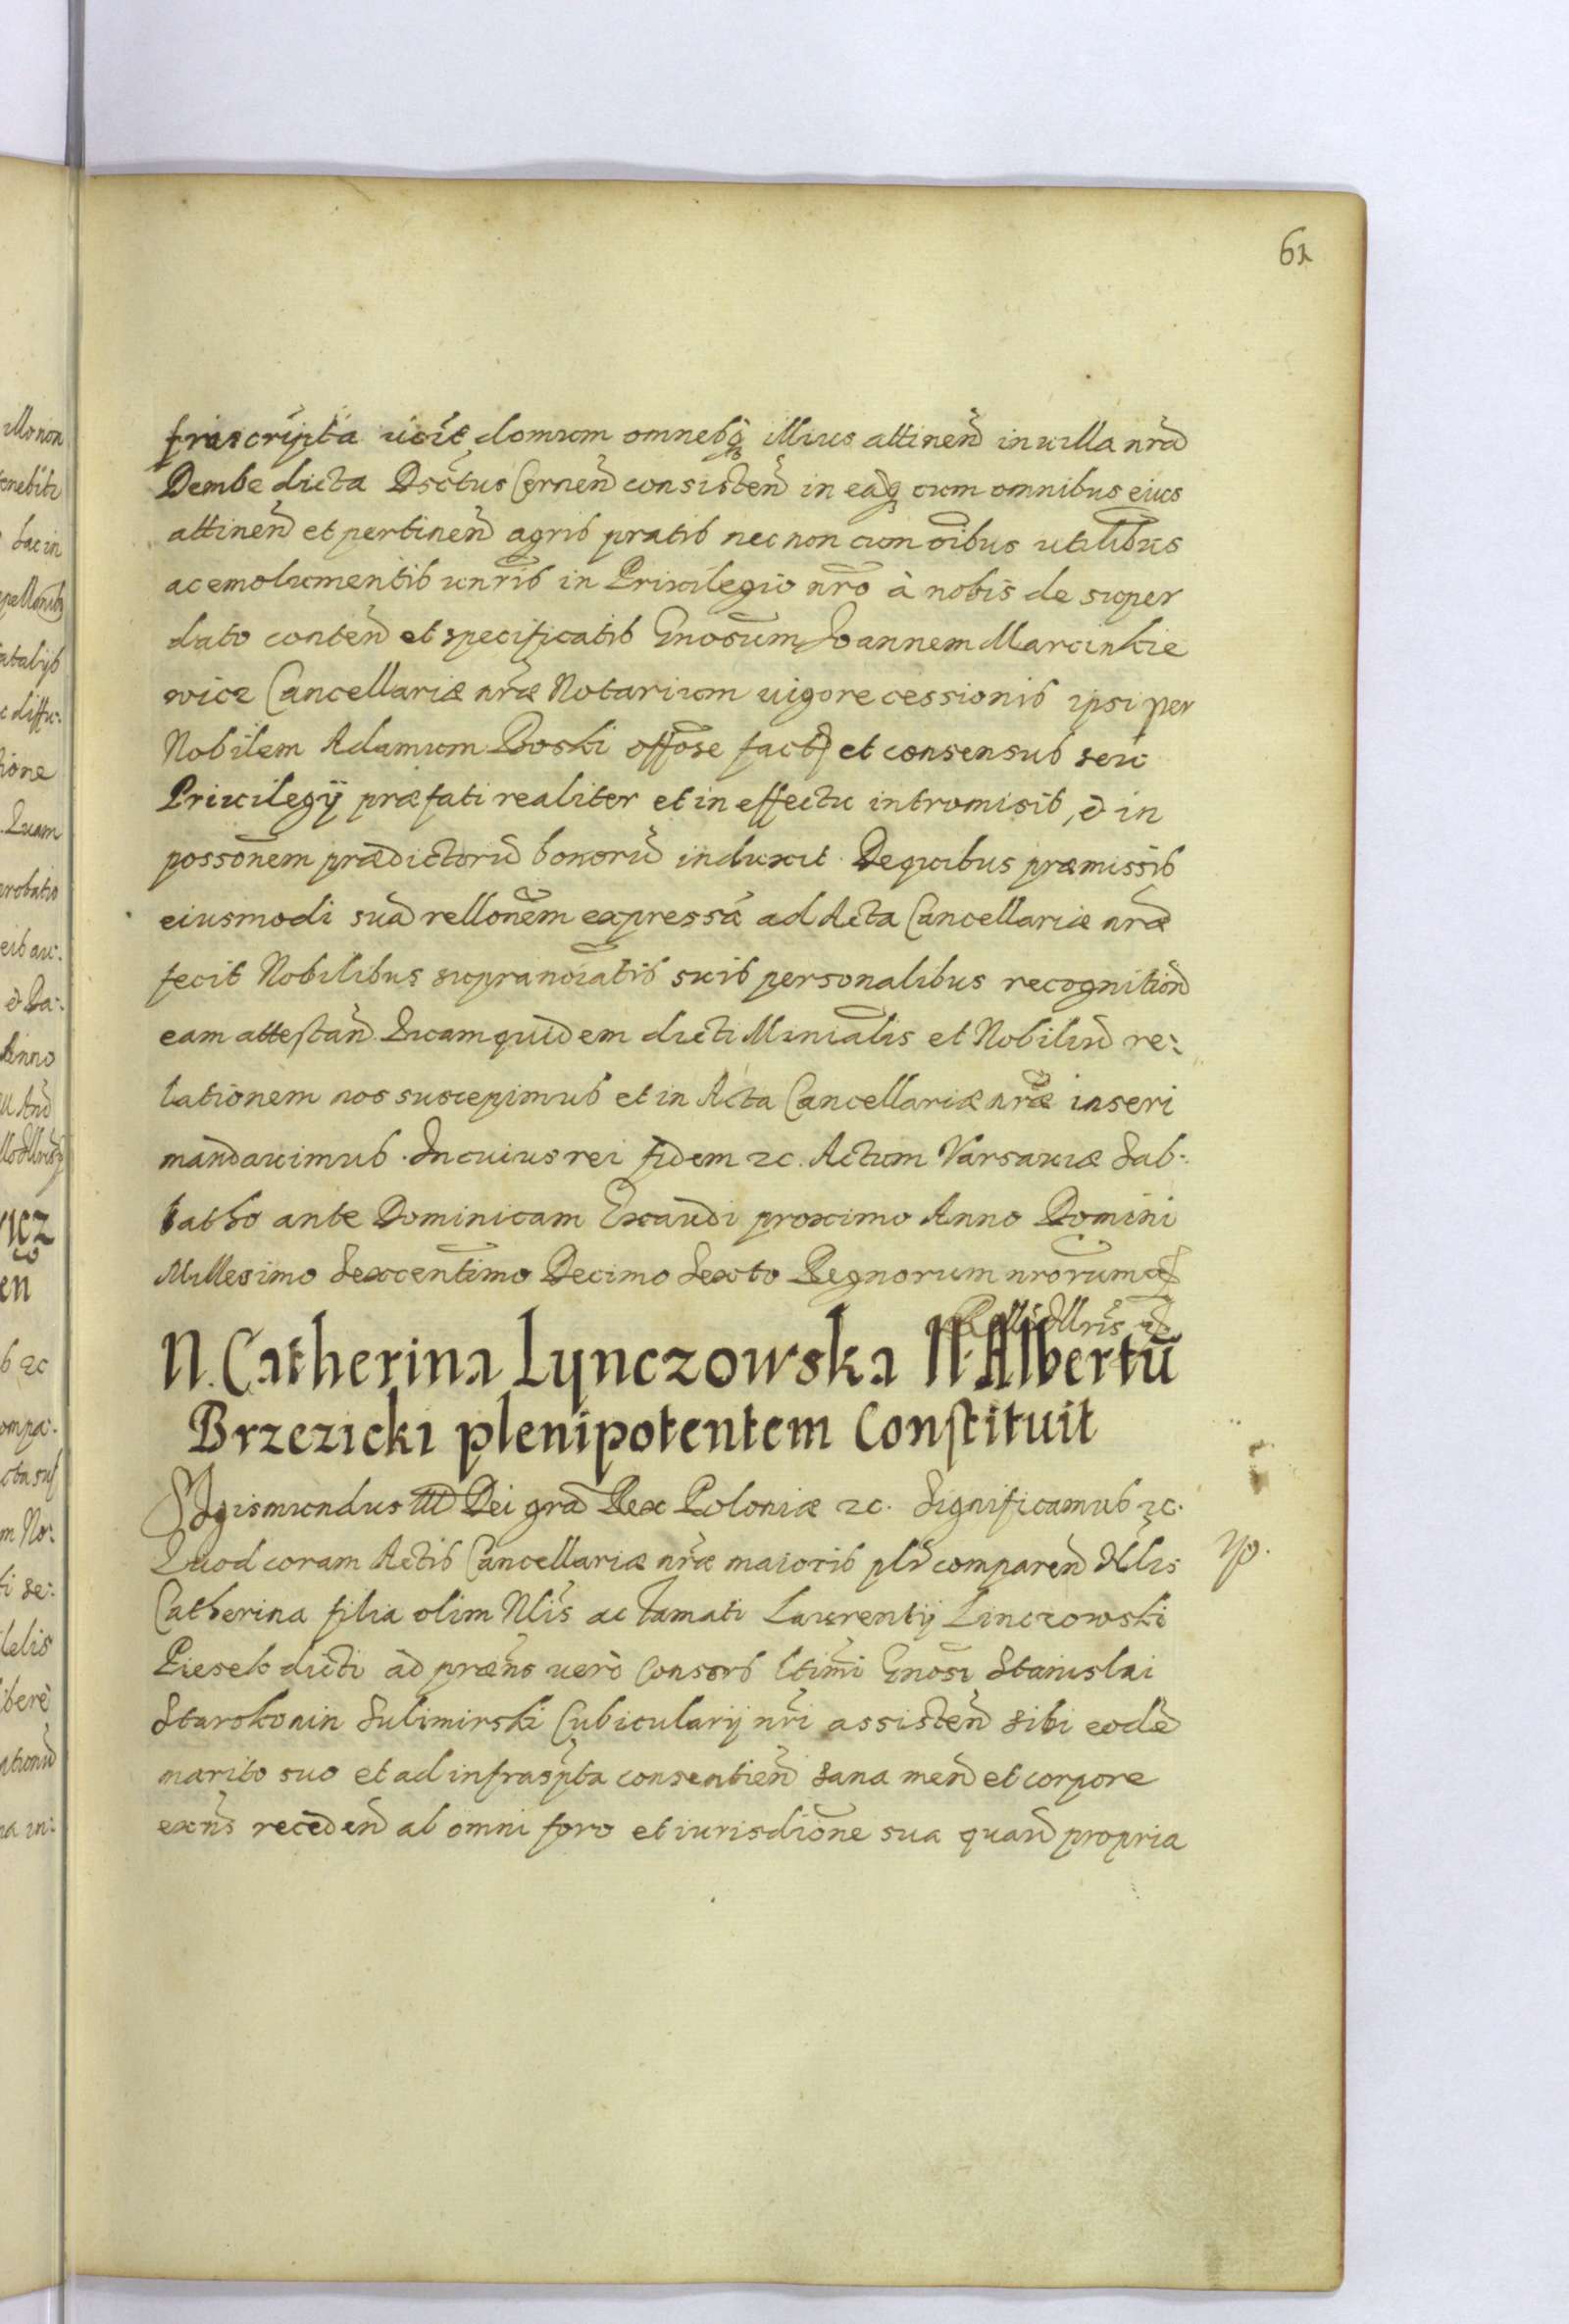 61
frascripta vi͠z domum omnesq́ illius attineñ in uilla nr̃a
Dembe dicta Dsc̃tus Cerneñ consisteñ in eaq́ cum omnibus eius
attineñ et pertineñ agris pratis nec non cum õibus utilibus
ac emolumentis unr̃is in Priuilegio nr̃o à nobis de super
dato conteñ et specificatis Gnosum̃ Joannem Marcinkie
wicz Cancellariæ nr̃æ Notarium uigore cessionis ipsi per
Nobilem Adamum Boski offõse factæ et consensus seu
Priuilegij præfati realiter et in effectu intromisit, & in
possõnem prædictorũ bonorũ induxit. De quibus præmissis
eiusmodi suã rellonẽm expressã ad Acta Cancellariæ nr̃æ
fecit Nobilibus supranoĩatis suis personalibus recognitioñ
eam attestañ Quam quidem dicti Miniãlis et Nobiliũ re:
lationem nos suscepimus et in Acta Cancellariæ nr̃æ inseri
mandauimus. In cuius rei fidem &c. Actum Varsauiæ Sab:
batho ante Dominicam Exaudi proximo Anno Domini
Millesimo Sexcentĩmo Decimo Sexto Regnorum nrorum̃
N. Catherina Lynczowska N. Albertũ
Brzezicki plenipotentem Constituit
Sigismundus III Dei grã Rex Poloniæ &c. Significamus &c.
Quod coram Actis Cancellariæ nr̃æ maioris plr̃ compareñ Nlis
Catherina filia olim Nlĩs ac famati Laurentij Linczowski
Piesek dicti ad præñs uerò Consors ltimĩ Gnosĩ Stanislai
Starskonin Sulimirski Cubicularij nr̃i assisteñ sibi eodẽ
marito suo et ad infrasp̃ta consentieñ sana meñ et corpore
exñs recedeñ ab omni foro et iurisdiõne sua quañ propria